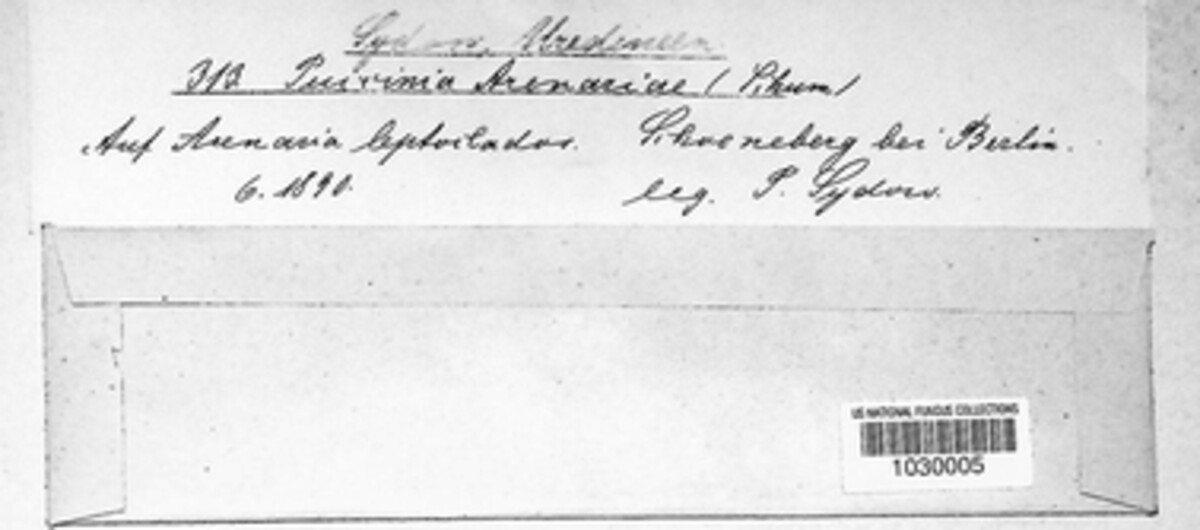 Sydow, Uredineen
313 Puccinia Arenariae (Schum)
Auf Arenaria leptoclados. Schoeneberg bei Berlin.
6. 1890. leg. P. Sydow.
US NATIONAL FUNGUS COLLECTIONS
1030005